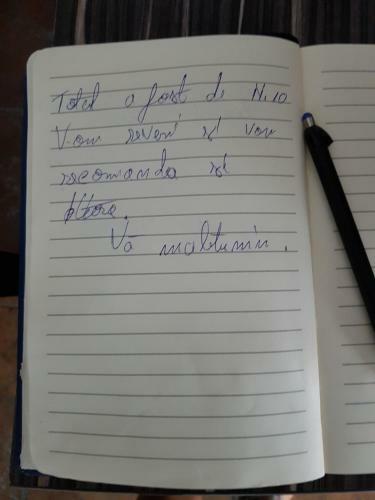 Total a fost de N.10
Vom reveni și vom
recomanda și
altora.
Vă mulțumim.